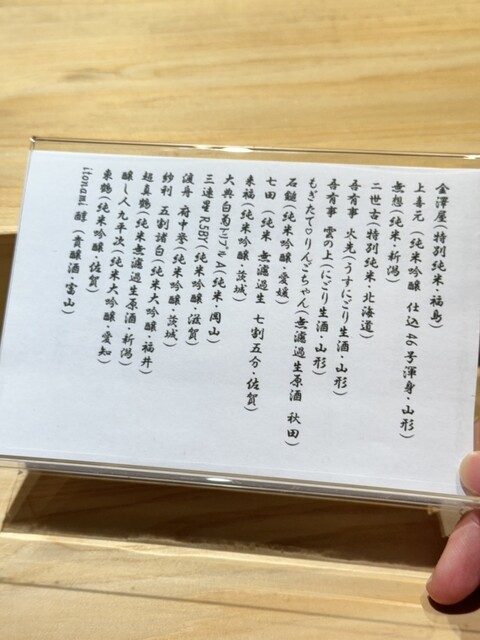 金澤屋(特別純米・福島)
上喜元(純米吟醸 仕込46号渾身・山形)
無想(純米・新潟)
二世古(特別純米・北海道)
吾有事 火光(うすにごり生酒・山形)
吾有事 雲の上(にごり生酒・山形)
もぎたて♡りんごちゃん(無濾過生原酒 秋田)
石鎚(純米吟醸・愛媛)
七田(純米 無濾過生 七割五分・佐賀)
来福(純米吟醸・茨城)
大典白菊トリプルA(純米・岡山)
三連星R5BY(純米吟醸・滋賀)
渡舟 府中誉(純米吟醸・茨城)
紗利 五割諸白(純米大吟醸・福井)
越真鶴(純米無濾過生原酒・新潟)
醸し人九平次(純米大吟醸・愛知)
東鶴(純米吟醸・佐賀)
itonami 醇(貴醸酒・富山)